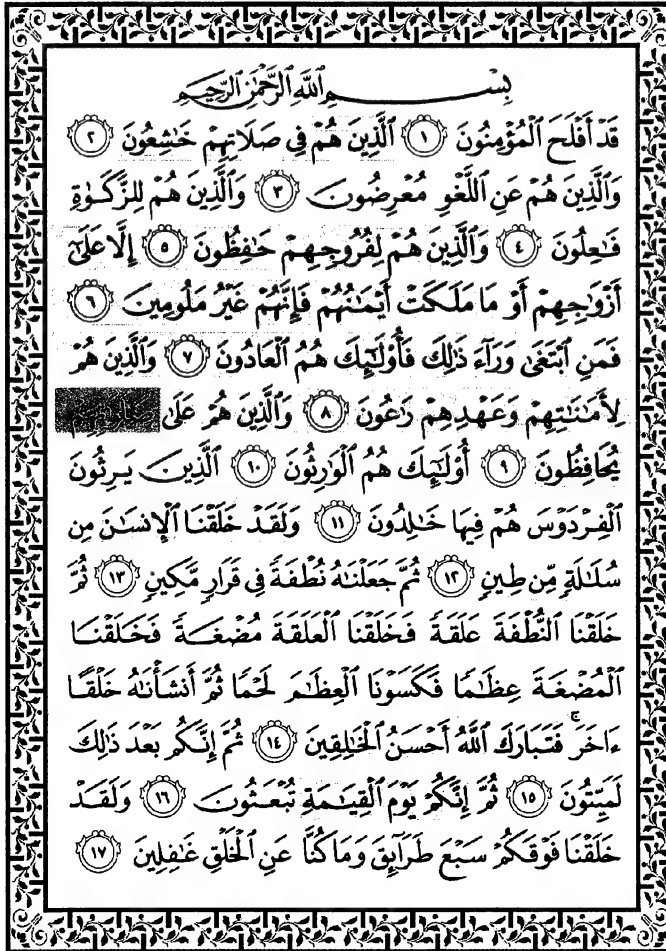 بِسْمِ ٱللَّهِ ٱلرَّحْمَٰنِ ٱلرَّحِيمِ
قَدْ أَفْلَحَ ٱلْمُؤْمِنُونَ ١ ٱلَّذِينَ هُمْ فِى صَلَاتِهِمْ خَٰشِعُونَ ٢
وَٱلَّذِينَ هُمْ عَنِ ٱللَّغْوِ مُعْرِضُونَ ٣ وَٱلَّذِينَ هُمْ لِلزَّكَوٰةِ
فَٰعِلُونَ ٤ وَٱلَّذِينَ هُمْ لِفُرُوجِهِمْ حَٰفِظُونَ ٥ إِلَّا عَلَىٰٓ
أَزْوَٰجِهِمْ أَوْ مَا مَلَكَتْ أَيْمَٰنُهُمْ فَإِنَّهُمْ غَيْرُ مَلُومِينَ ٦
فَمَنِ ٱبْتَغَىٰ وَرَآءَ ذَٰلِكَ فَأُو۟لَٰٓئِكَ هُمُ ٱلْعَادُونَ ٧ وَٱلَّذِينَ هُمْ
لِأَمَٰنَٰتِهِمْ وَعَهْدِهِمْ رَٰعُونَ ٨ وَٱلَّذِينَ هُمْ عَلَىٰ
يُحَافِظُونَ ٩ أُو۟لَٰٓئِكَ هُمُ ٱلْوَٰرِثُونَ ١٠ ٱلَّذِينَ يَرِثُونَ
ٱلْفِرْدَوْسَ هُمْ فِيهَا خَٰلِدُونَ ١١ وَلَقَدْ خَلَقْنَا ٱلْإِنسَٰنَ مِن
سُلَٰلَةٍ مِّن طِينٍ ١٢ ثُمَّ جَعَلْنَٰهُ نُطْفَةً فِى قَرَارٍ مَّكِينٍ ١٣ ثُمَّ
خَلَقْنَا ٱلنُّطْفَةَ عَلَقَةً فَخَلَقْنَا ٱلْعَلَقَةَ مُضْغَةً فَخَلَقْنَا
ٱلْمُضْغَةَ عِظَٰمًا فَكَسَوْنَا ٱلْعِظَٰمَ لَحْمًا ثُمَّ أَنشَأْنَٰهُ خَلْقًا
ءَاخَرَ ۚ فَتَبَارَكَ ٱللَّهُ أَحْسَنُ ٱلْخَٰلِقِينَ ١٤ ثُمَّ إِنَّكُم بَعْدَ ذَٰلِكَ
لَمَيِّتُونَ ١٥ ثُمَّ إِنَّكُمْ يَوْمَ ٱلْقِيَٰمَةِ تُبْعَثُونَ ١٦ وَلَقَدْ
خَلَقْنَا فَوْقَكُمْ سَبْعَ طَرَآئِقَ وَمَا كُنَّا عَنِ ٱلْخَلْقِ غَٰفِلِينَ ١٧